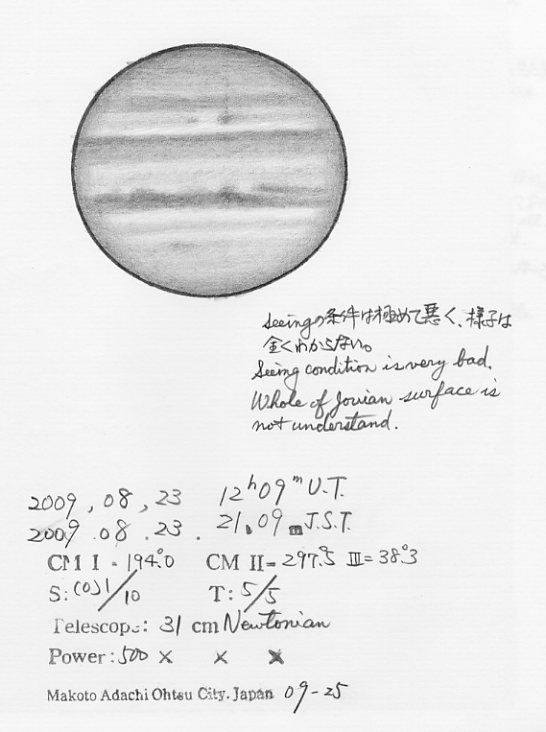 Seeingの条件は極めて悪く、様子は
全くわからない。
Seeing condition is very bad.
Whole of Jovian surface is
not understand.
2009, 08, 23 12h09m U.T.
2009.08.23. 21.09m J.S.T.
CM I = 194.°0 CM II= 297.°5 III= 38.°3
S: (0)1/10 T: 5/5
Telescope: 31 cm Newtonian
Power: 500 × × ×
Makoto Adachi Ohtsu City. Japan 09-25